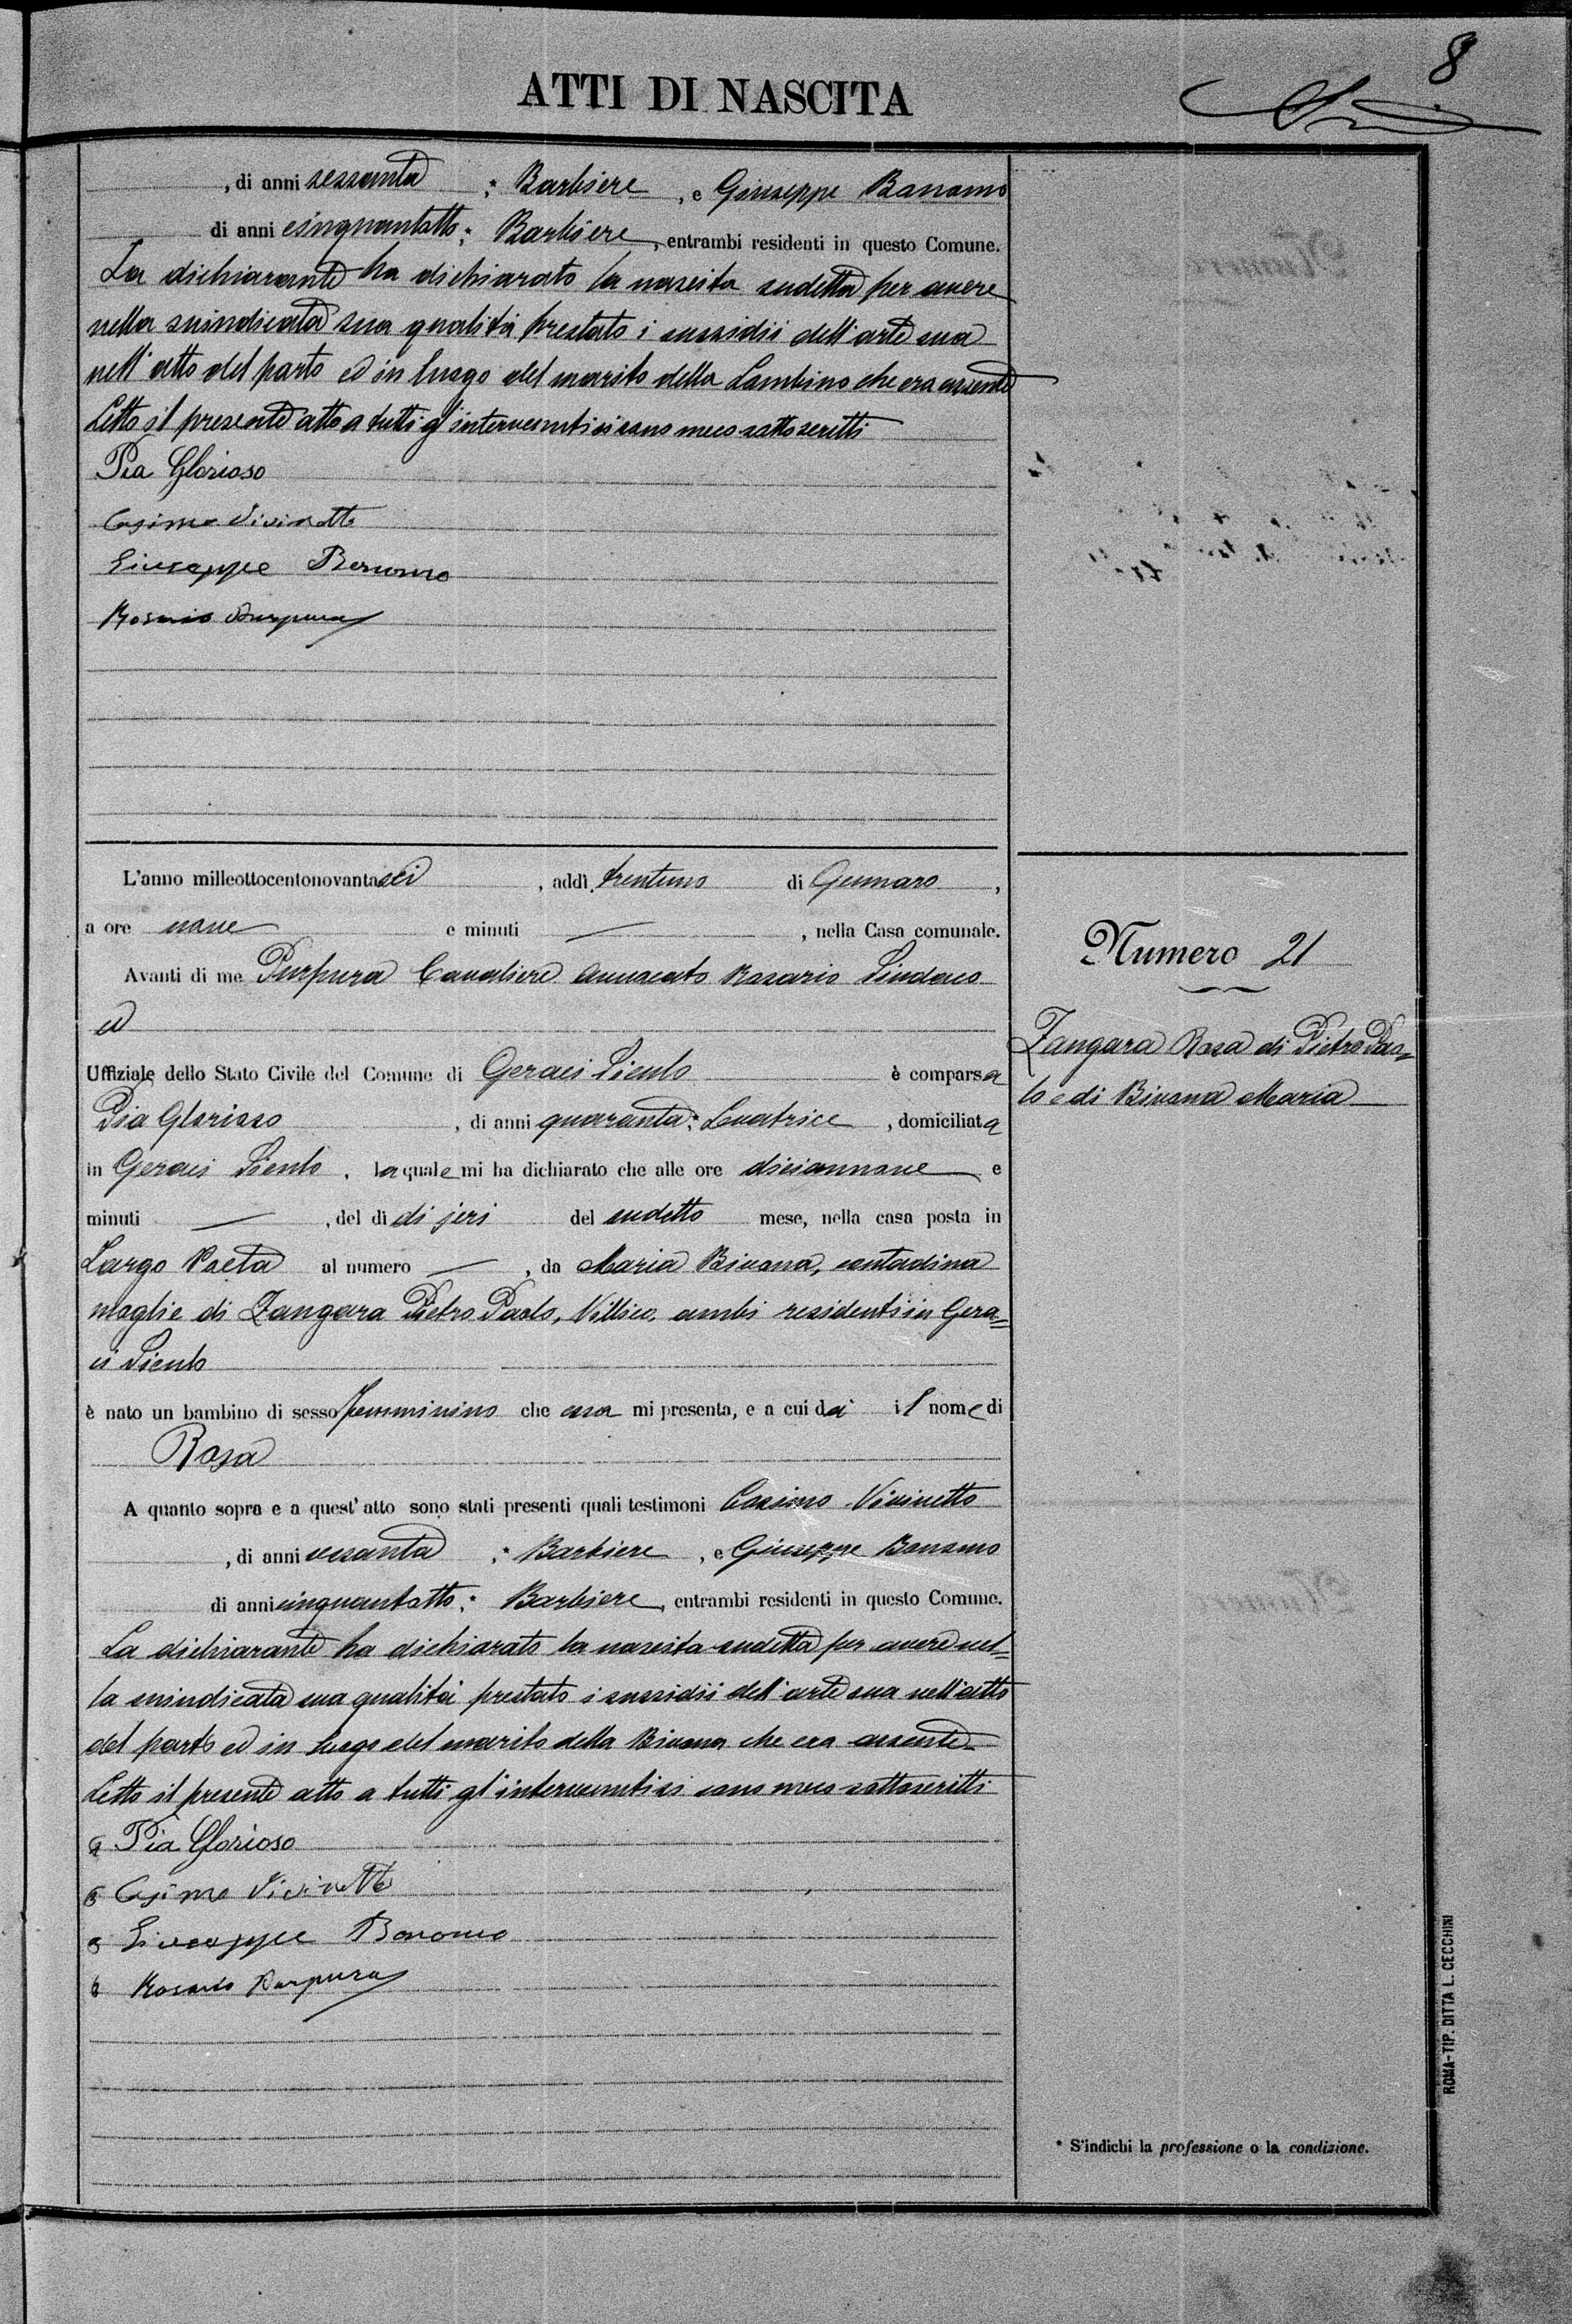 8
ATTI DI NASCITA
, di anni sessanta ;* Barbiere , e Giuseppe Bonomo
di anni cinquantotto ;* Barbiere, entrambi residenti in questo Comune.
La dichiarante ha dichiarato la nascita sudetta per avere
nella suindicata sua qualità prestato i sussidii dell'arte sua
nell'atto del parto ed in luogo del marito della Lambino che era assente
Letto il presente atto a tutti gl'intervenuti si sono meco sottoscritti
Pia Glorioso
Cosimo Vicinotto
Giuseppe Bonomo
Rosario Purpura
L'anno milleottocentonovantasei , addì trentuno di Gennaro ,
a ore nove e minuti — , nella Casa comunale.
Avanti di me Purpura Cavaliere Avvocato Rosario Sindaco
ed
Uffiziale dello Stato Civile del Comune di Geraci Siculo è comparsa
Pia Glorioso , di anni quaranta ;* Levatrice , domiciliata
in Geraci Siculo , la quale mi ha dichiarato che alle ore diciannove e
minuti — , del dì di jeri del sudetto mese, nella casa posta in
Largo Poeta al numero — , da Maria Bivona, contadina
moglie di Zangara Pietro Paolo, Villico, ambi residenti in Gera=
ci Siculo
è nato un bambino di sesso femminino che essa mi presenta, e a cui dà il nome di
Rosa
A quanto sopra e a quest'atto sono stati presenti quali testimoni Cosimo Vicinetto
, di anni sessanta ;* Barbiere , e Giuseppe Bonomo
di anni cinquantotto ;* Barbiere, entrambi residenti in questo Comune.
La dichiarante ha dichiarato la nascita sudetta per avere nel=
la suindicata sua qualità prestato i sussidii dell'arte sua nell'atto
del parto ed in luogo del marito della Bivona che era assente
Letto il presente atto a tutti gl'intervenuti si sono meco sottoscritti
Pia Glorioso
Cosimo Vicinotto
Giuseppe Bonomo
Rosario Purpura
Numero 21
Zangara Rosa di Pietro Pao=
lo e di Bivona Maria
* S'indichi la professione o la condizione.
ROMA-TIP. DITTA L. CECCHINI